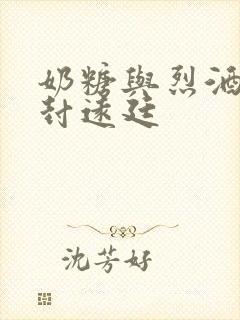 奶糖與烈酒
封遠廷
沈芳好